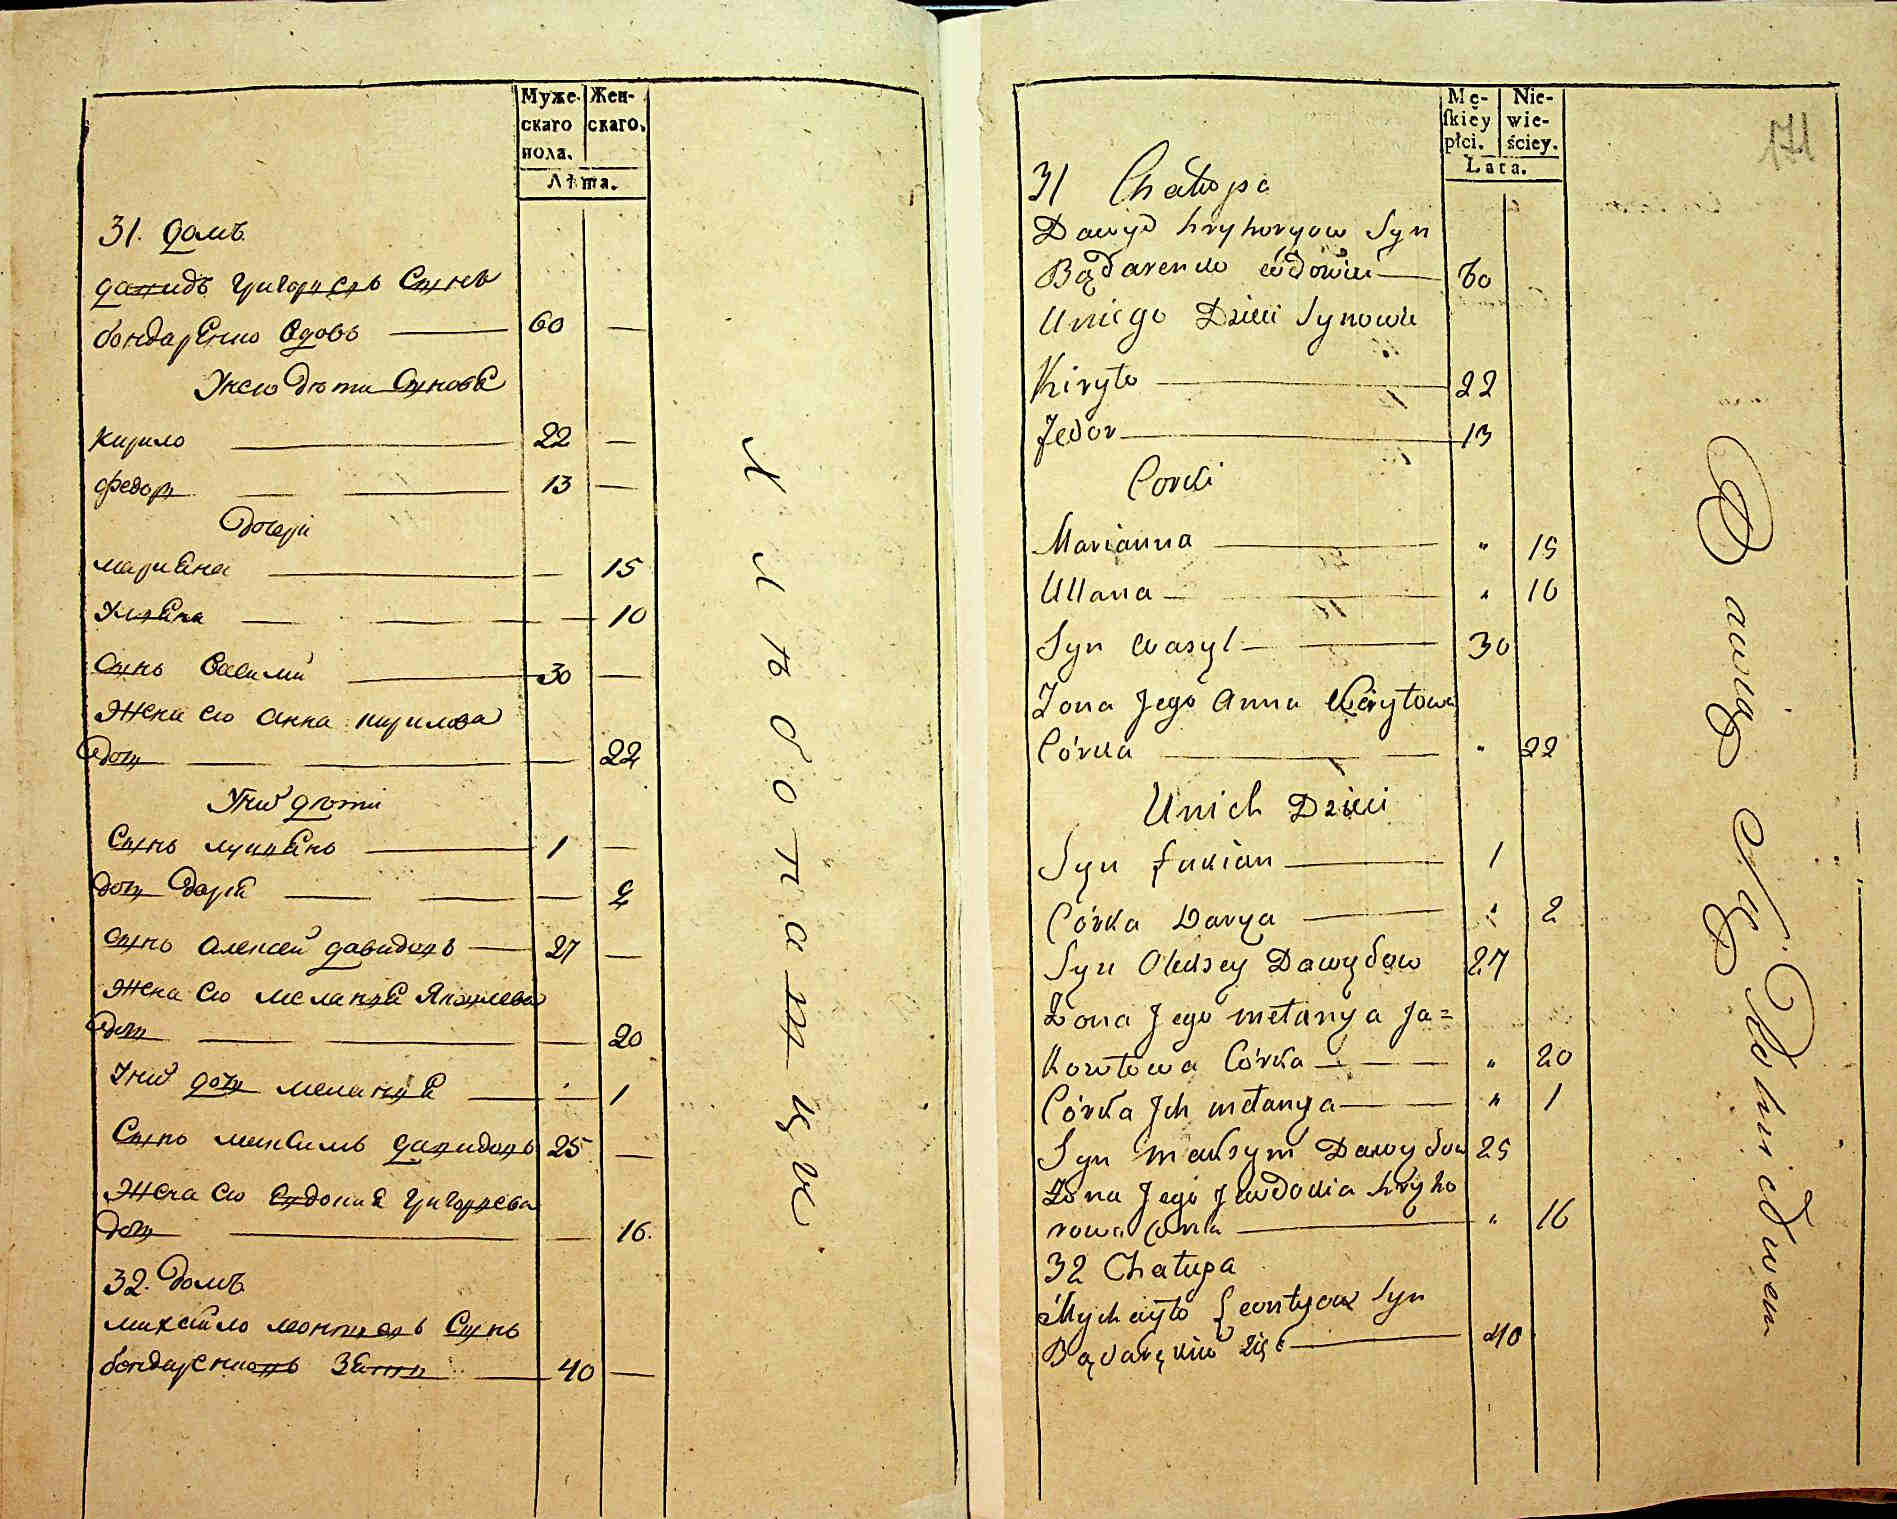 Муже-
скаго
пола.
Жен-
скаго.
Лѣта.
31. домъ
давидъ григориевъ Сынъ
бондаренко вдовъ 60 —
У него дѣти Сынове
кирило 22 —
федоръ 13 —
дочери
мариана — 15
Улиана — 10
Сынъ василий 30 —
Жена его анна кирилова
дочь — 22
У них дѣти
Сынъ лукианъ 1 —
дочь дария — 2
Сынъ алексей давидовъ 27 —
Жена его мелания Яковлева
дочь — 20
У них дочь мелания — 1
Сынъ максимъ давидовъ 25 —
Жена его евдокия григориева
дочь — 16.
32. домъ
михайло леонтиевъ Сынъ
бондаренковъ Зять 40 —
Mę-
ſkiéy
płci.
Nie-
wie-
ściey.
Lata.
171
31 Chałupa
Dawyd hryhoryow Syn
Bądarenko wdowiec 60
Uniego Dzieci Synowie
Kiryło 22
Fedor 13
Corki
Marianna " 15
Ullana " 10
Syn Wasyl 30
Zona Jego Anna Kiryłowa
Córka " 22
Unich Dzieci
Syn Łukian 1
Córka Darya " 2
Syn Olexsey Dawydow 27
Zona Jego mełanya Ja=
kowłowa Córka " 20
Córka Jch mełanya " 1
Syn maksym Dawydow 25
Zona Jego Jewdokia hryho
rowa Corka " 16
32 Chałupa
Mychayło Leontyow Syn
Bądaręków Zięć 40